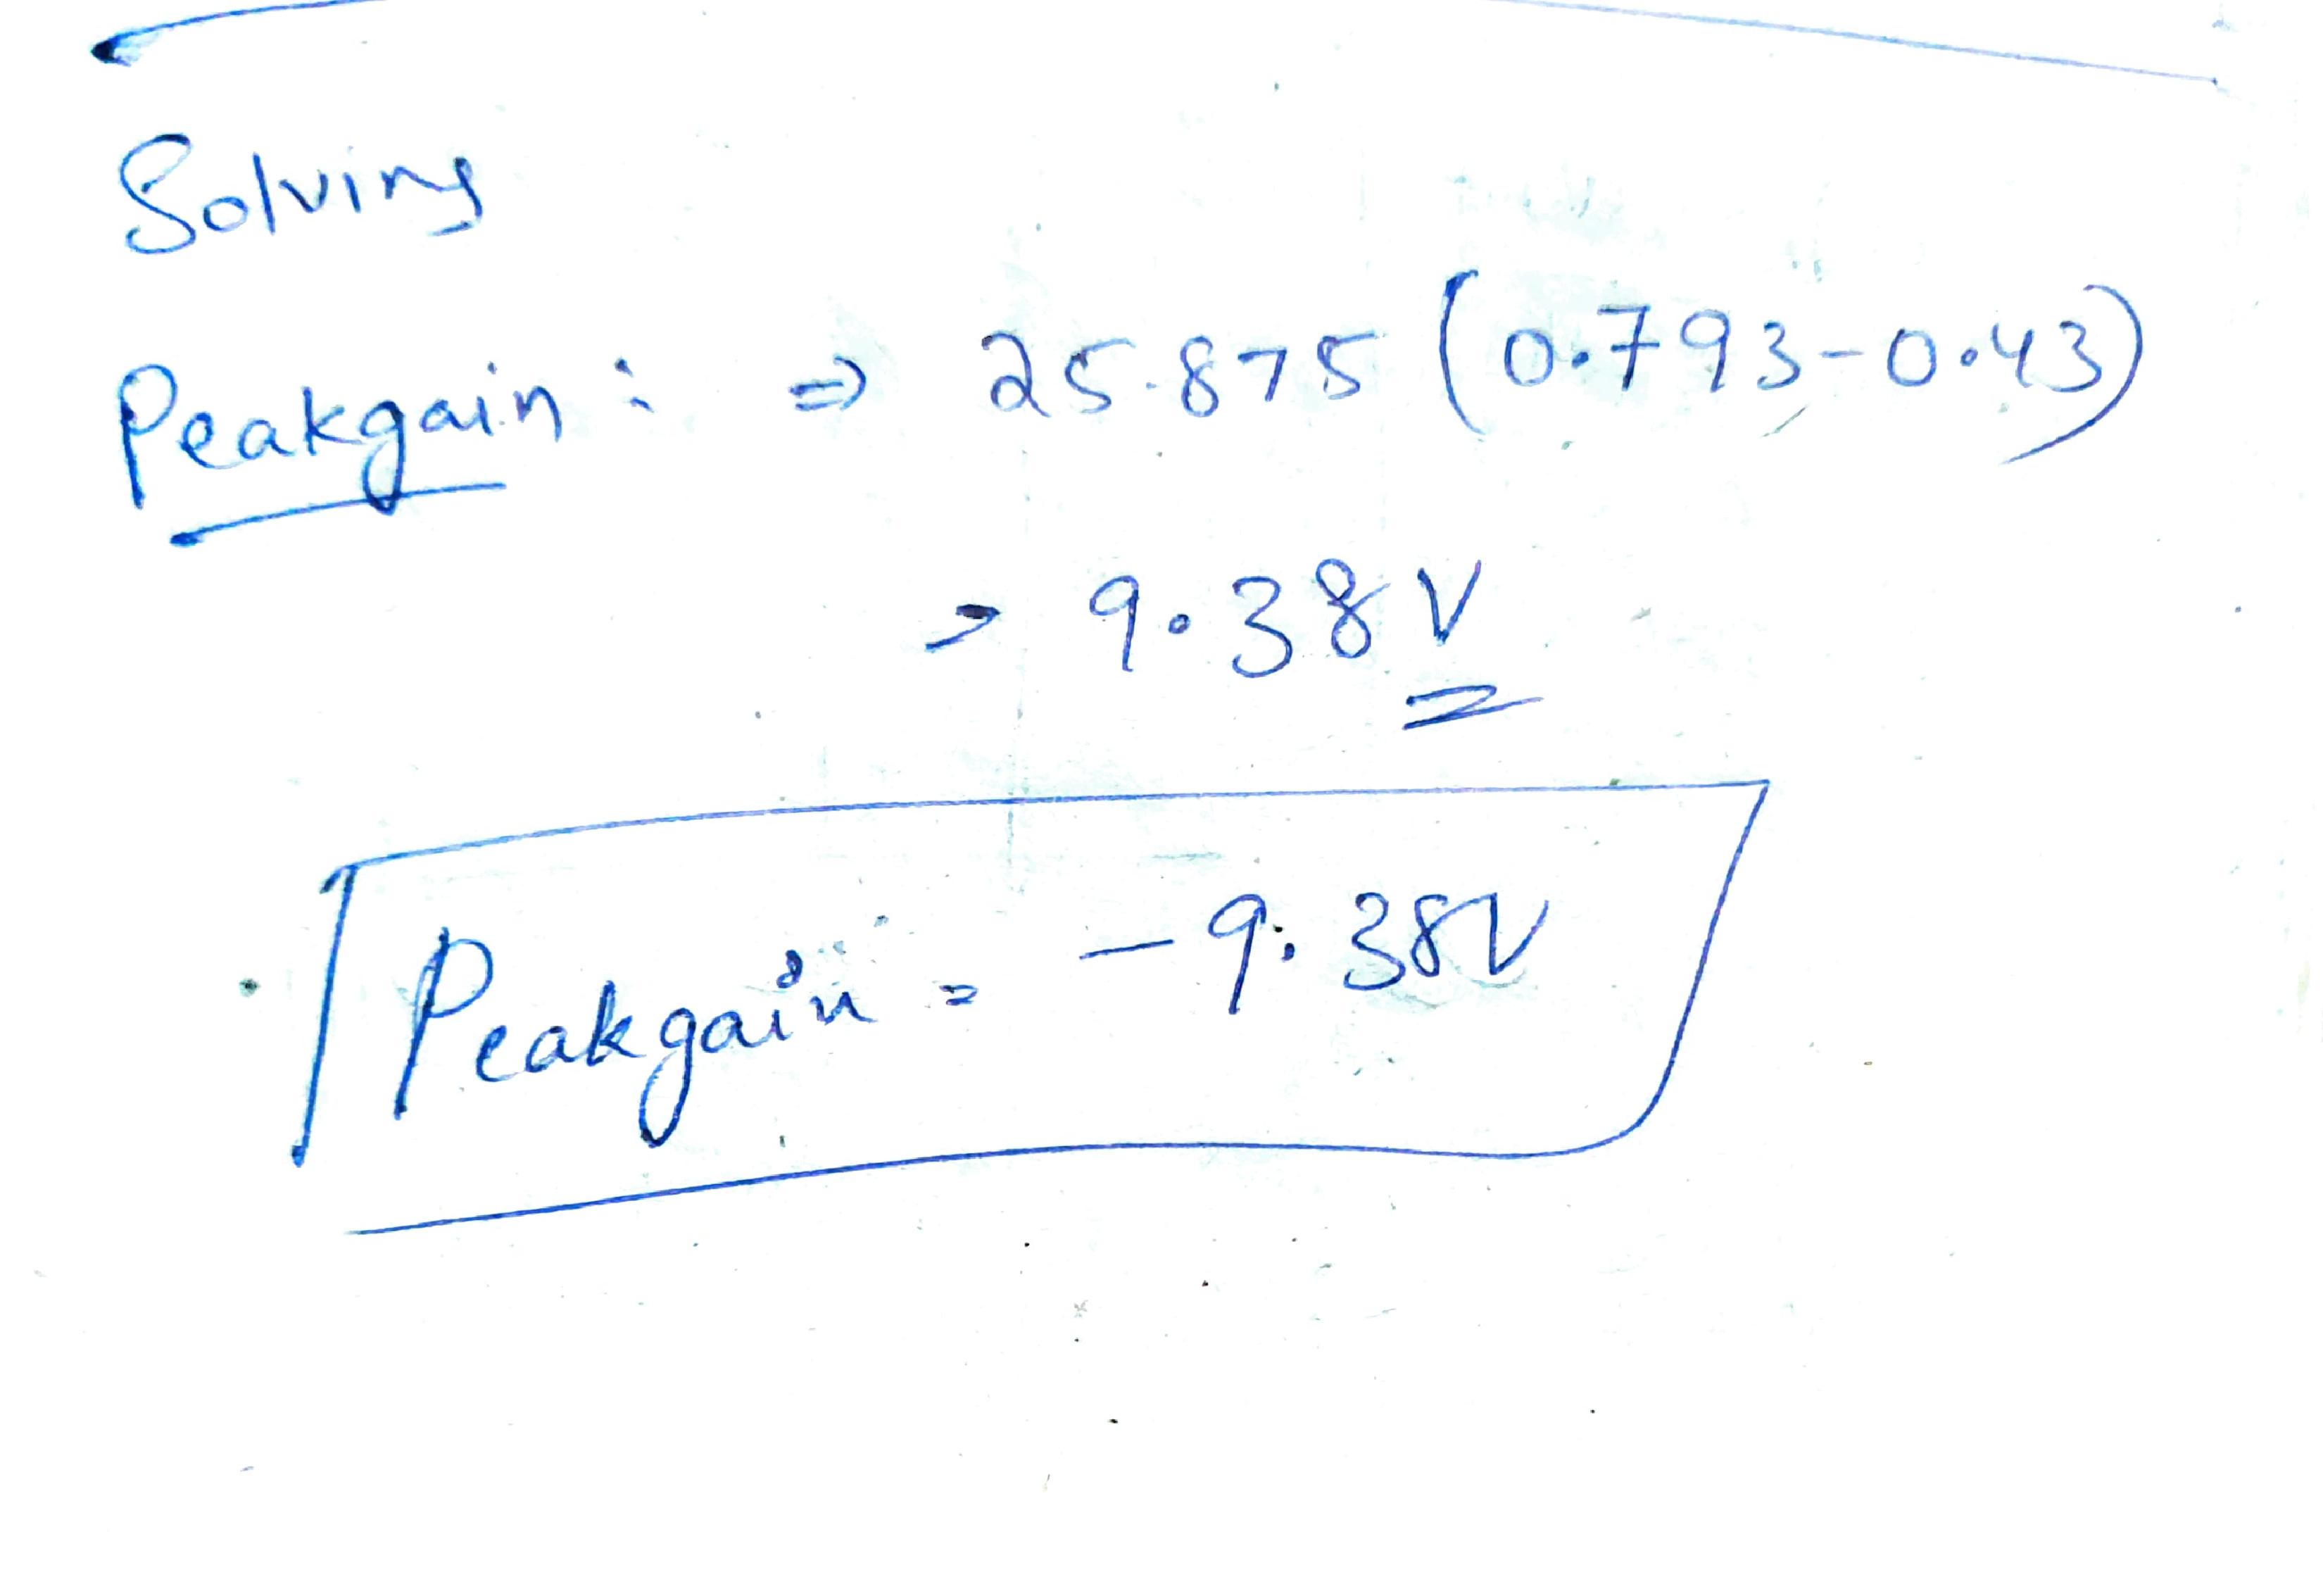 Solving
Peakgain : ⇒ 25.875 (0.793-0.43)
⇒ 9.38V
Peakgain = -9.38V